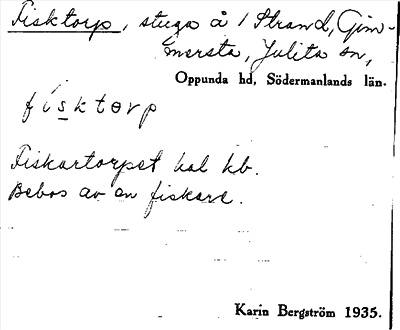 Fisktorp, stuga å 1 Strand, Gim-
mersta, Julita sn,
Oppunda hd, Södermanlands län.
fisktorp
Fiskartorpet hal kb.
Bebos av en fiskare.
Karin Bergström 1935.